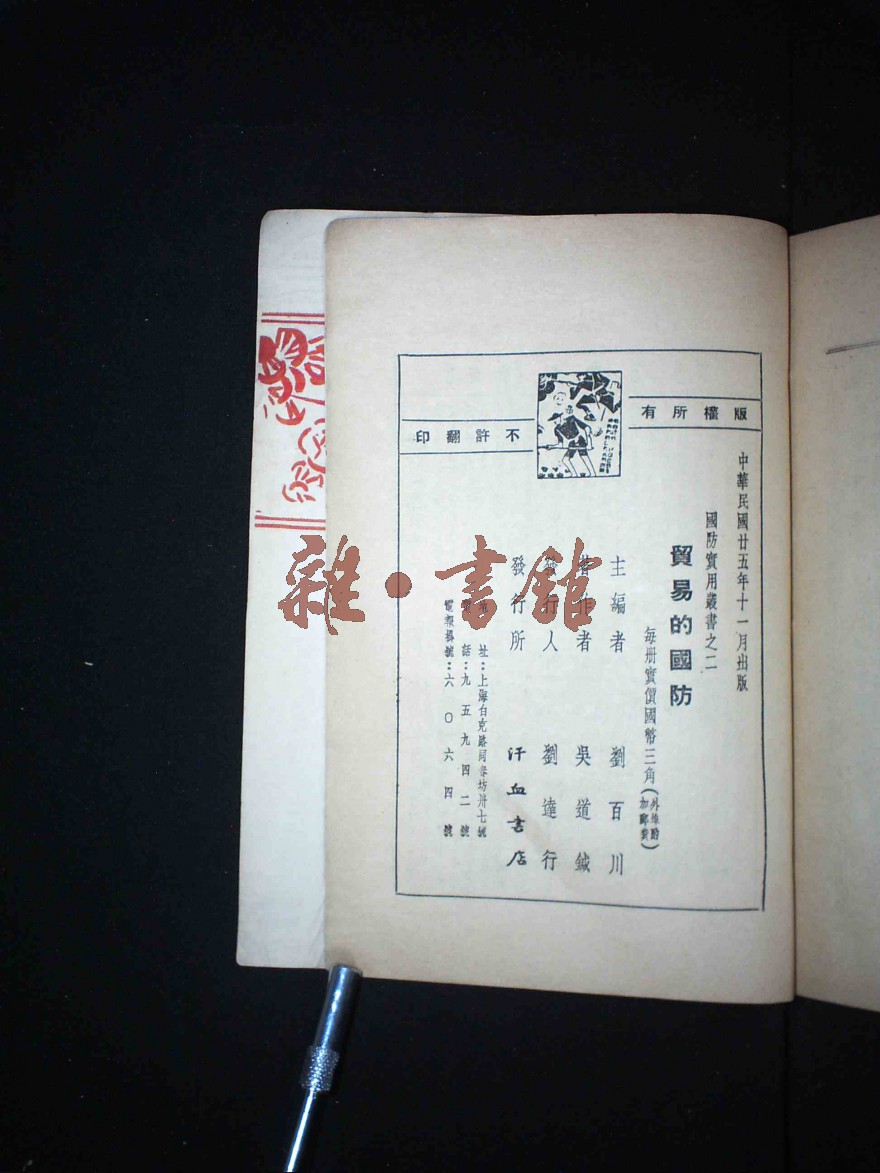 版權所有
不許翻印
中華民國廿五年十一月出版
國防實用叢書之二
貿易的國防
每册實價國幣三角(外埠酌加郵費)
主編者 劉百川
著作者 吳道鍼
發行人 劉達行
發行所 汗血書店
地址:上海白克路同春坊卅七號
電話:九五九四二號
電報掛號:六〇六四號
雜·書館